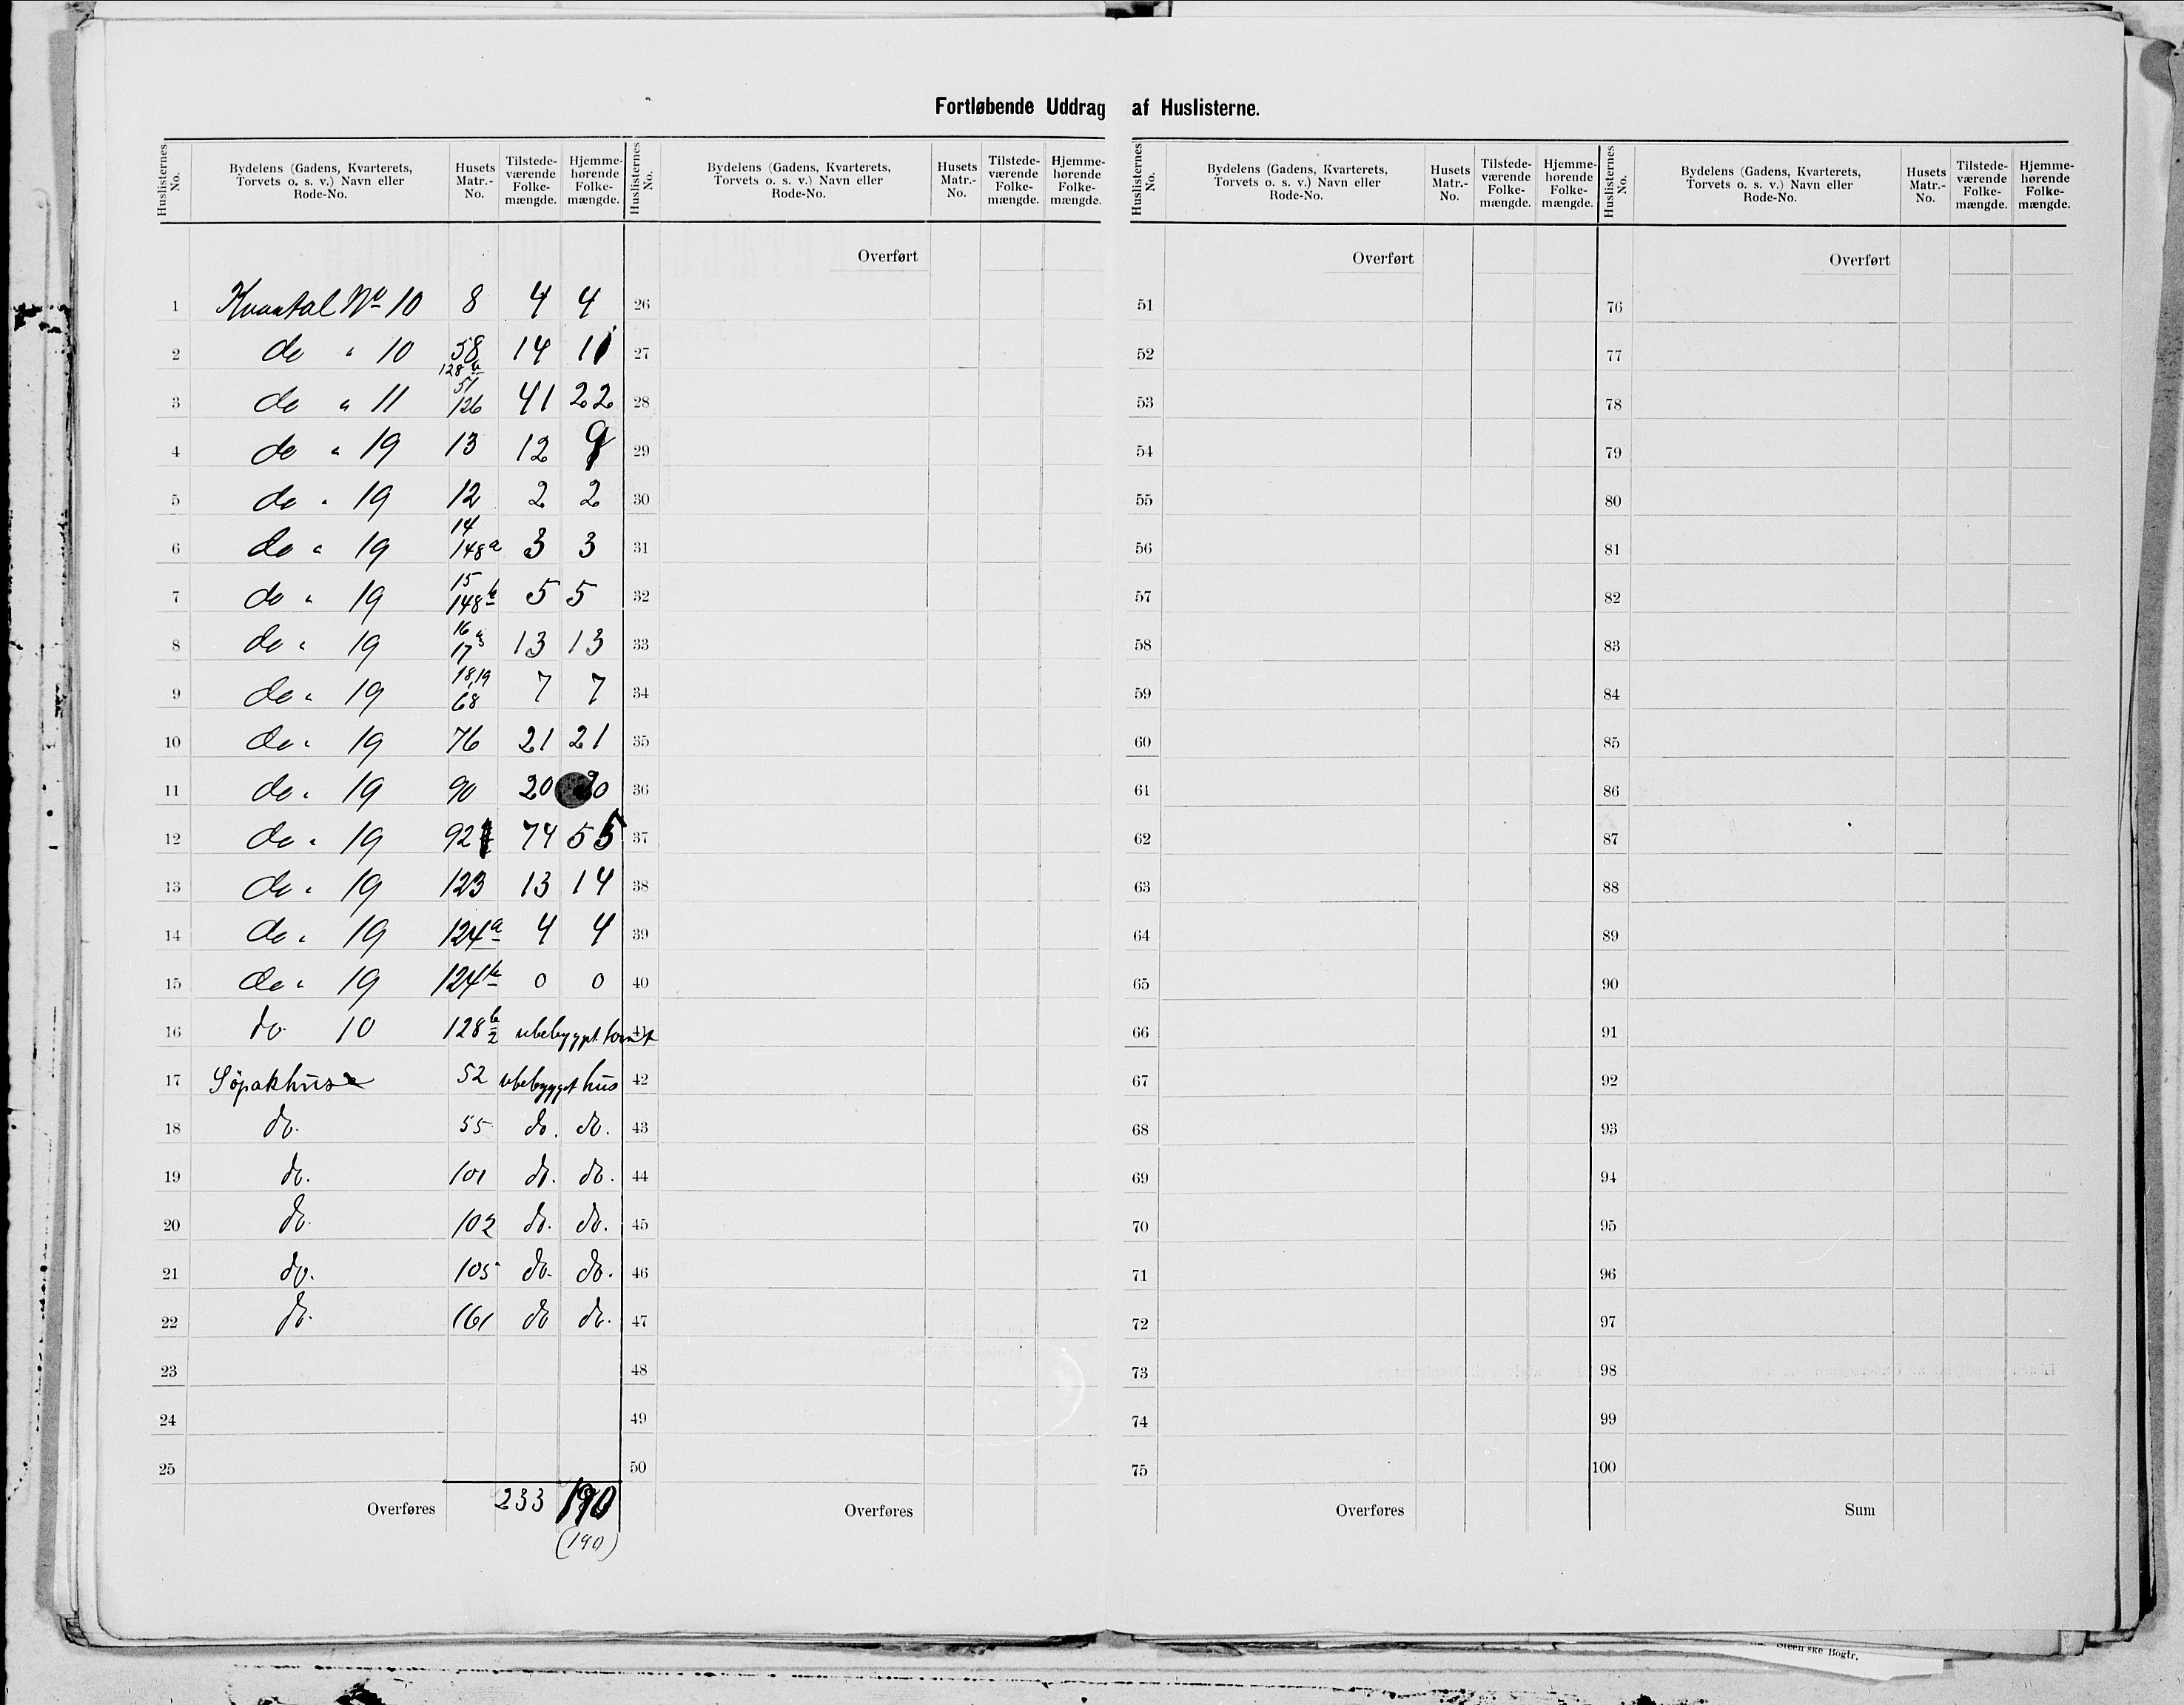 Fortløbende Uddrag af Huslisterne.
Huslisternes No. Bydelens (Gadens, Kvarterets, Torvets o. s. v.) Navn eller Rode-No. Husets Matr.-No. Tilstedeværende Folkemængde. Hjemmehørende Folkemængde.
1 Kvartal No 10 8 4 4
2 do " 10 58 128 b 14 11
3 do " 11 51 126 41 22
4 do " 19 13 12 9
5 do " 19 12 2 2
6 do " 19 14 148 a 3 3
7 do " 19 15 148 b 5 5
8 do " 19 16 17 13 13
9 do " 19 18,19 68 7 7
10 do " 19 76 21 21
11 do " 19 90 20 20
12 do " 19 92 74 55
13 do " 19 123 13 14
14 do " 19 124 a 4 4
15 do " 19 124 b 0 0
16 do 10 128 b 2 ubebygget tomt
17 Söpakhus 52 ubebygget hus
18 do. 55 do. do.
19 do. 101 do. do.
20 do. 102 do. do.
21 do. 105 do. do.
22 do. 161 do do.
23
24
25
Overføres 233 190
(190)
Huslisternes No. Bydelens (Gadens, Kvarterets, Torvets o. s. v.) Navn eller Rode-No. Husets Matr.-No. Tilstedeværende Folkemængde. Hjemmehørende Folkemængde.
Overført
26
27
28
29
30
31
32
33
34
35
36
37
38
39
40
41
42
43
44
45
46
47
48
49
50
Overføres
Huslisternes No. Bydelens (Gadens, Kvarterets, Torvets o. s. v.) Navn eller Rode-No. Husets Matr.-No. Tilstedeværende Folkemængde. Hjemmehørende Folkemængde.
Overført
51
52
53
54
55
56
57
58
59
60
61
62
63
64
65
66
67
68
69
70
71
72
73
74
75
Overføres
Huslisternes No. Bydelens (Gadens, Kvarterets, Torvets o. s. v.) Navn eller Rode-No. Husets Matr.-No. Tilstedeværende Folkemængde. Hjemmehørende Folkemængde.
Overført
76
77
78
79
80
81
82
83
84
85
86
87
88
89
90
91
92
93
94
95
96
97
98
99
100
Sum
Steenske Bogtr.